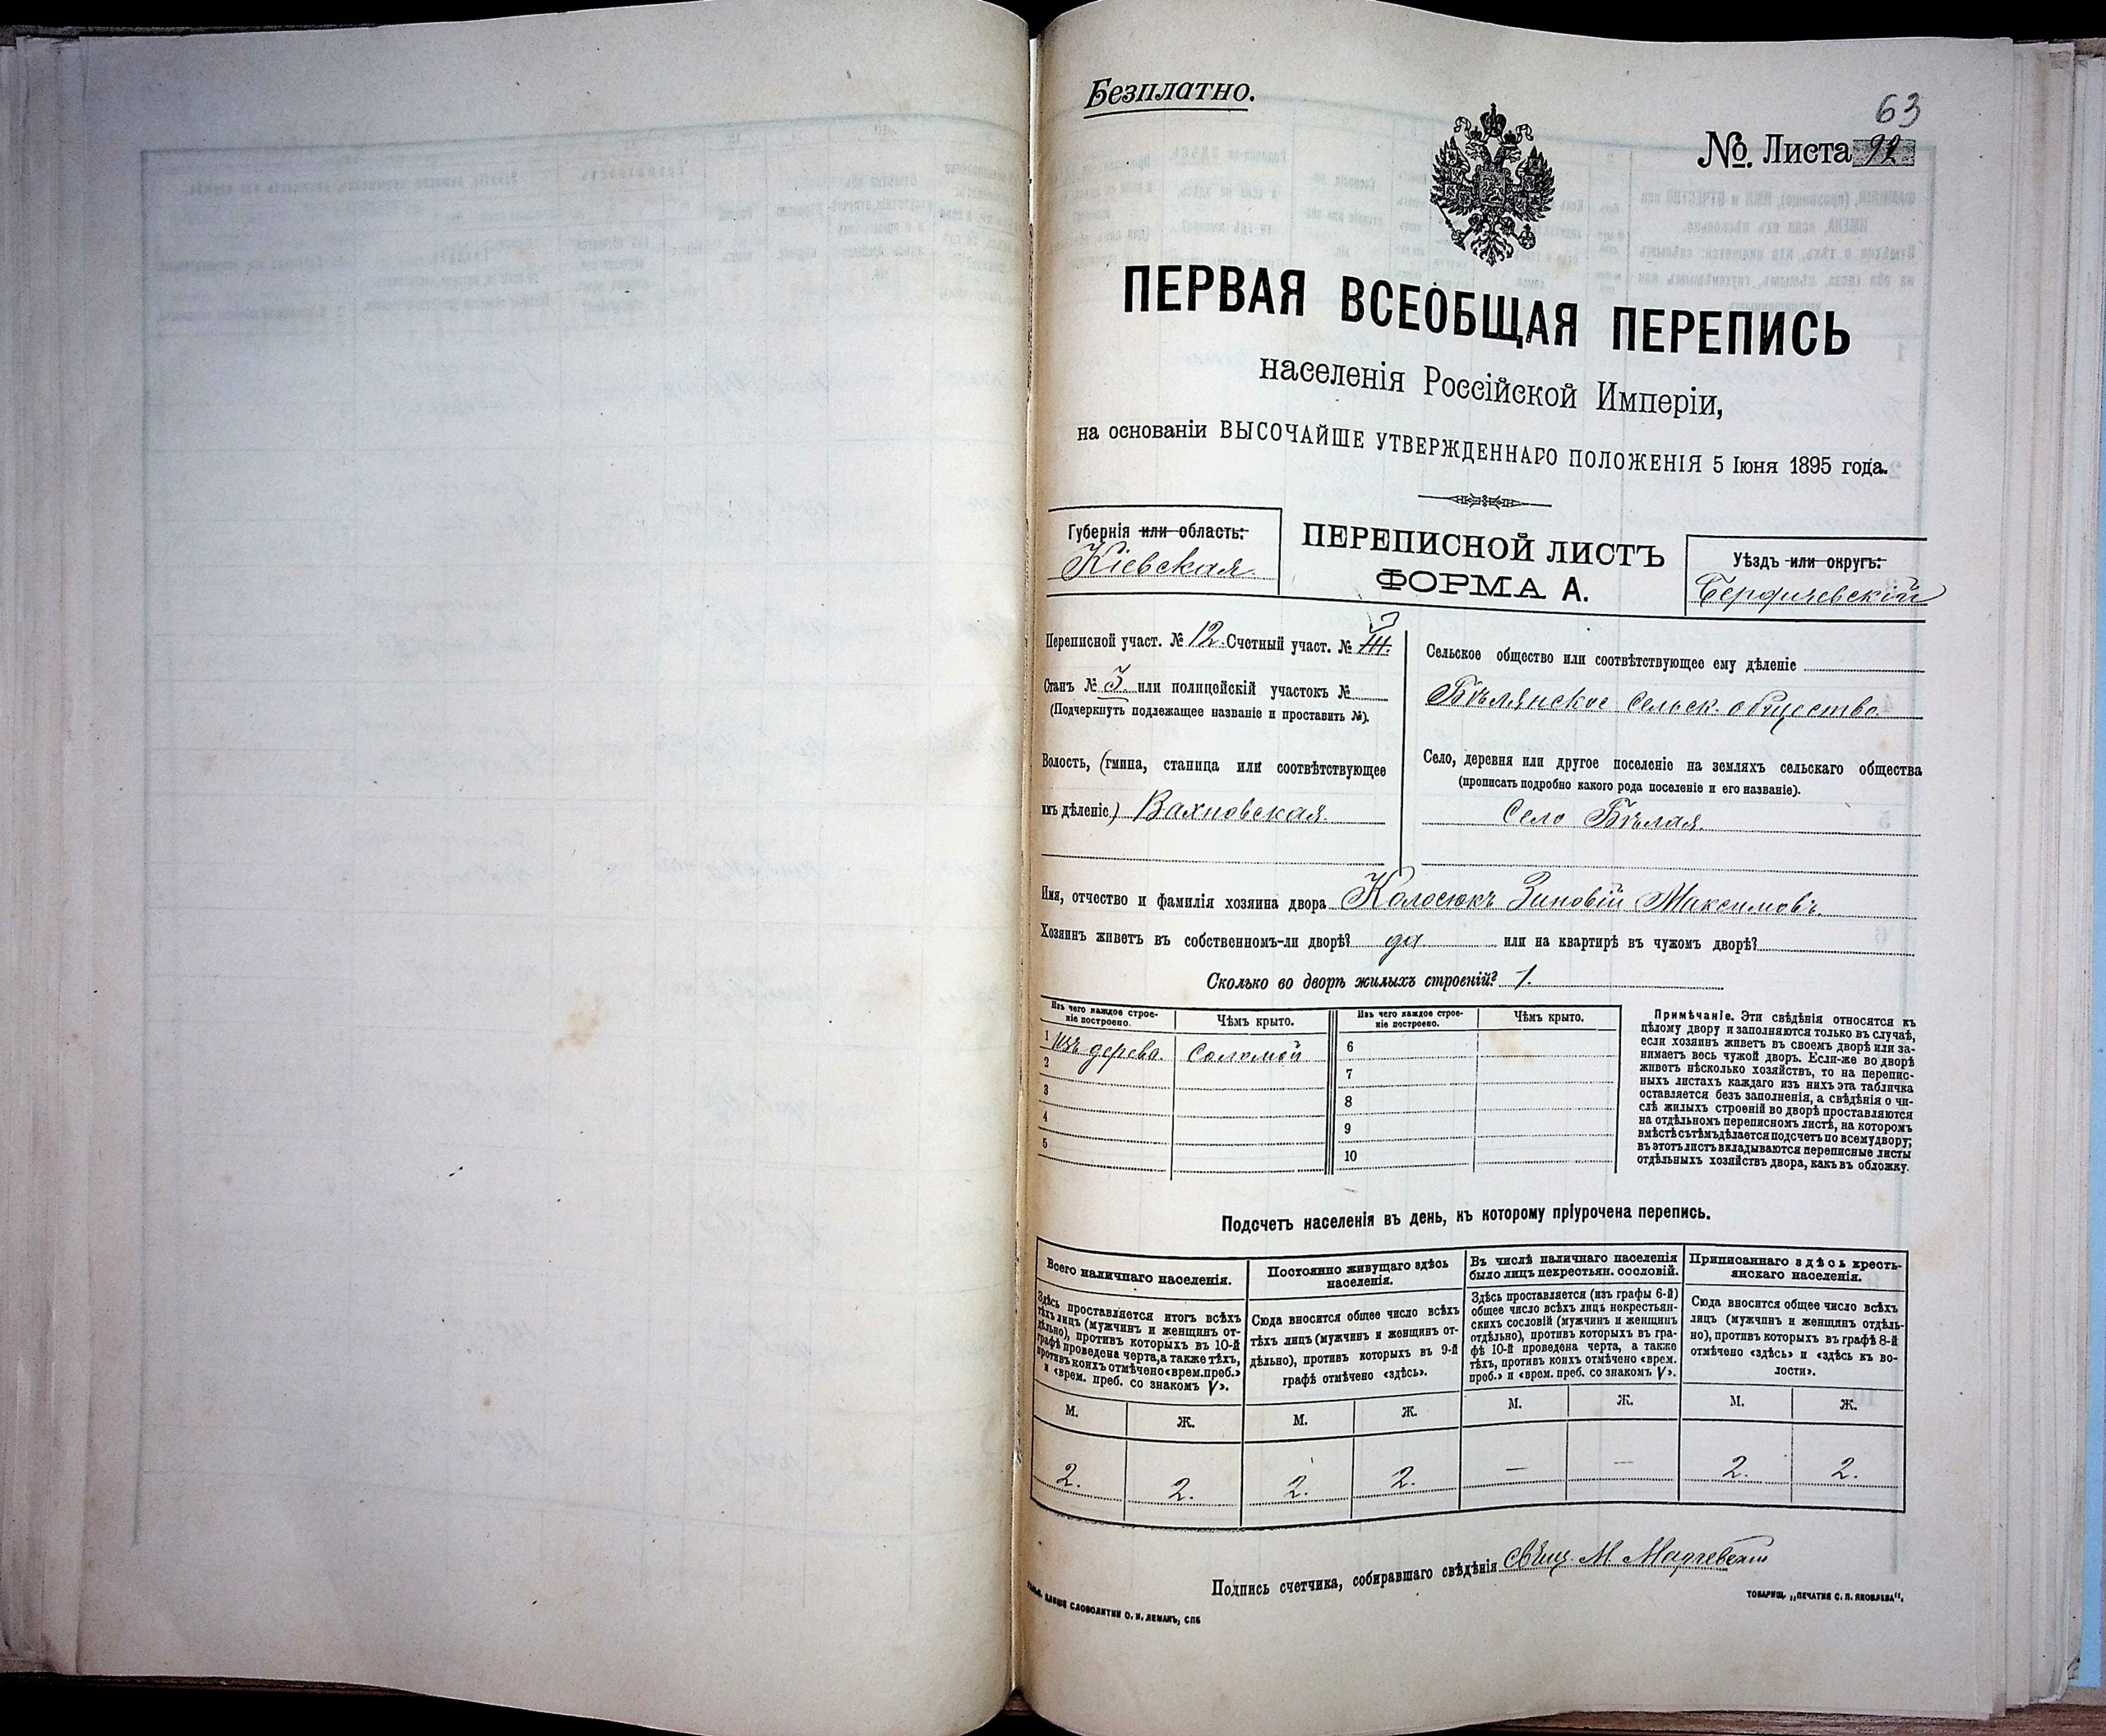 Безплатно.
63
№. Листа 92
ПЕРВАЯ ВСЕОБЩАЯ ПЕРЕПИСЬ
населенія Россійской Имперіи,
на основаніи ВЫСОЧАЙШЕ УТВЕРЖДЕННАГО ПОЛОЖЕНІЯ 5 Іюня 1895 года.
Губернія или область:
Кіевская
ПЕРЕПИСНОЙ ЛИСТЪ
ФОРМА А.
Уѣздъ или округъ:
Бердичевскій
Переписной участ. № 12. Счетный участ. № III.
Станъ № 3. или полицейскій участокъ №
(Подчеркнуть подлежащее названіе и проставить №).
Волость, (гмина, станица или соотвѣтствующее
имъ дѣленіе) Вахновская.
Сельское общество или соотвѣтствующее ему дѣленіе
Бѣлянское сельск. общество.
Село, деревня или другое поселеніе на земляхъ сельскаго общества
(прописать подробно какого рода поселеніе и его названіе).
Село Бѣлая.
Имя, отчество и фамилія хозяина двора Колосюкъ Зиновій Максимовъ.
Хозяинъ живетъ въ собственномъ-ли дворѣ? да или на квартирѣ въ чужомъ дворѣ?
Сколько во дворѣ жилыхъ строеній? 1.
Изъ чего каждое строе-
ніе построено.
Чѣмъ крыто.
Изъ чего каждое строе-
ніе построено.
Чѣмъ крыто.
1 Изъ дерева. Соломой 6
2 7
3 8
4 9
5 10
Примѣчаніе. Эти свѣдѣнія относятся къ
цѣлому двору и заполняются только въ случаѣ,
если хозяинъ живетъ въ своемъ дворѣ или за-
нимаетъ весь чужой дворъ. Если-же во дворѣ
живетъ нѣсколько хозяйствъ, то на перепис-
ныхъ листахъ каждаго изъ нихъ эта табличка
оставляется безъ заполненія, а свѣдѣнія о чи-
слѣ жилыхъ строеній во дворѣ проставляются
на отдѣльномъ переписномъ листѣ, на которомъ
вмѣстѣ съ тѣмъ дѣлается подсчетъ по всему двору;
въ этотъ листъ вкладываются переписные листы
отдѣльныхъ хозяйствъ двора, какъ въ обложку.
Подсчетъ населенія въ день, къ которому пріурочена перепись.
Всего наличнаго населенія.
Здѣсь проставляется итогъ всѣхъ
тѣхъ лицъ (мужчинъ и женщинъ от-
дѣльно), противъ которыхъ въ 10-й
графѣ проведена черта, а также тѣхъ,
противъ коихъ отмѣчено «врем. преб.»
и «врем. преб. со знакомъ V».
Постоянно живущаго здѣсь
населенія.
Сюда вносится общее число всѣхъ
тѣхъ лицъ (мужчинъ и женщинъ от-
дѣльно), противъ которыхъ въ 9-й
графѣ отмѣчено «здѣсь».
Въ числѣ наличнаго населенія
было лицъ некрестьян. сословій.
Здѣсь проставляется (изъ графы 6-й)
общее число всѣхъ лицъ некрестьян-
скихъ сословій (мужчинъ и женщинъ
отдѣльно), противъ которыхъ въ гра-
фѣ 10-й проведена черта, а также
тѣхъ, противъ коихъ отмѣчено «врем.
преб.» и «врем. преб. со знакомъ V».
Приписаннаго здѣсь кресть-
янскаго населенія.
Сюда вносится общее число всѣхъ
лицъ (мужчинъ и женщинъ отдѣль-
но), противъ которыхъ въ графѣ 8-й
отмѣчено «здѣсь» и «здѣсь къ во-
лости».
М. Ж. М. Ж. М. Ж. М. Ж.
2. 2. 2. 2. — — 2. 2.
Подпись счетчика, собиравшаго свѣдѣнія Свящ. М.
СЛОВОЛИТНИ О. И. ЛЕМАНЪ, СПБ
ТОВАРИЩ. „ПЕЧАТНЯ С. П. ЯКОВЛЕВА“.